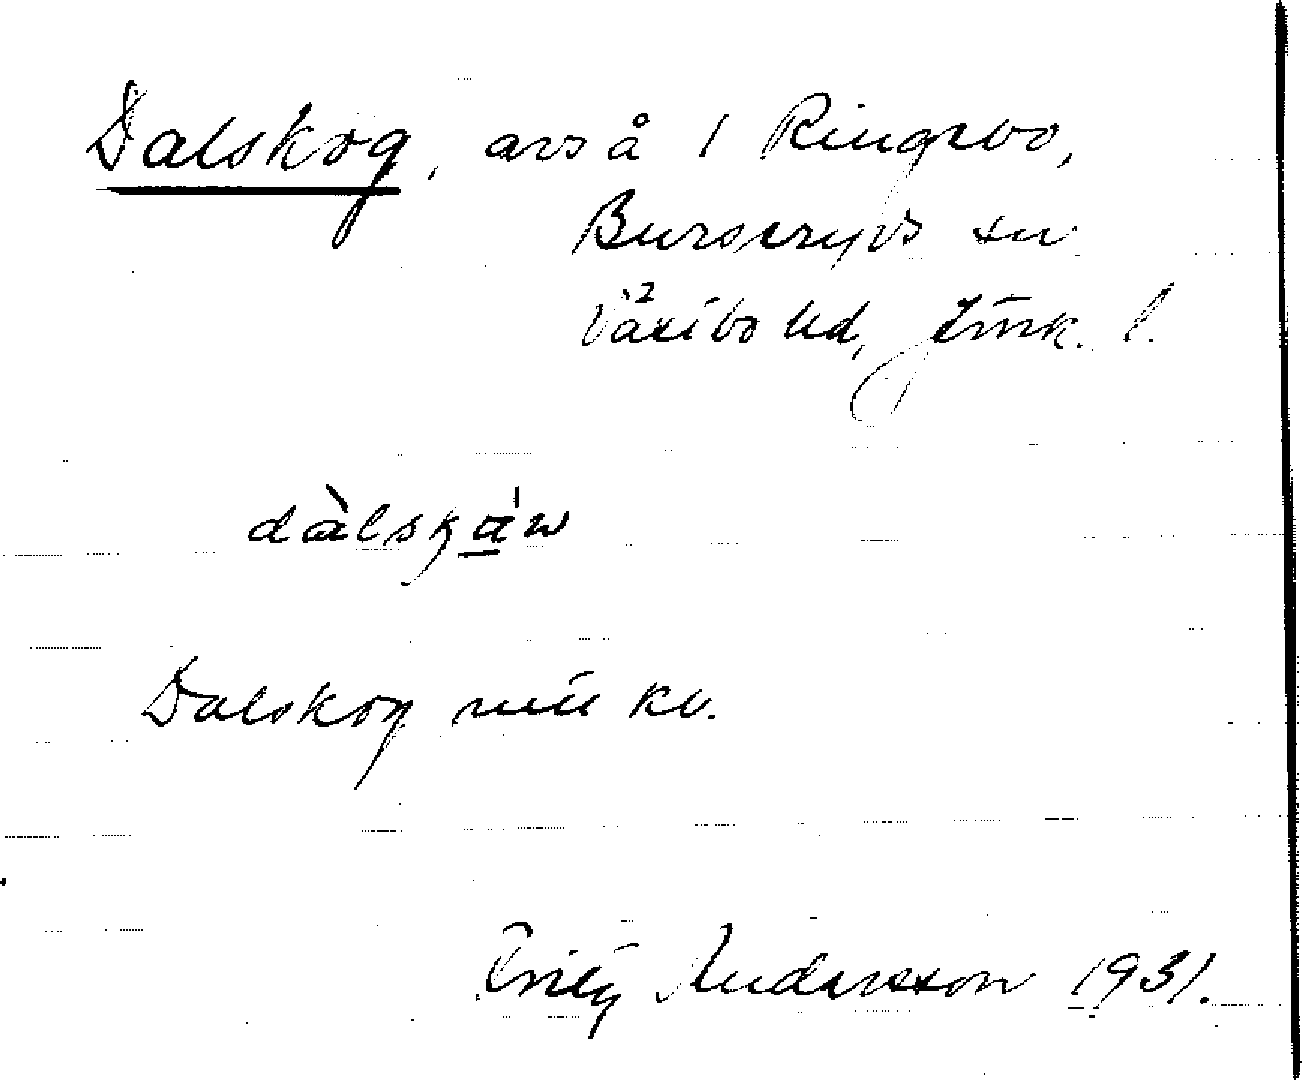 Dalskog, avs å i Ringsbo,
Burseryds sn
Västbo hd, Jönk. l.
dàlskaw
Dalskog mtl kv.
Emily Andersson 1931.